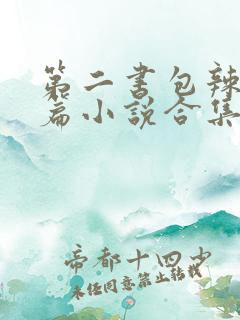 第二书包辣
篇小说合集
帝都十四少
未经同意禁止转载